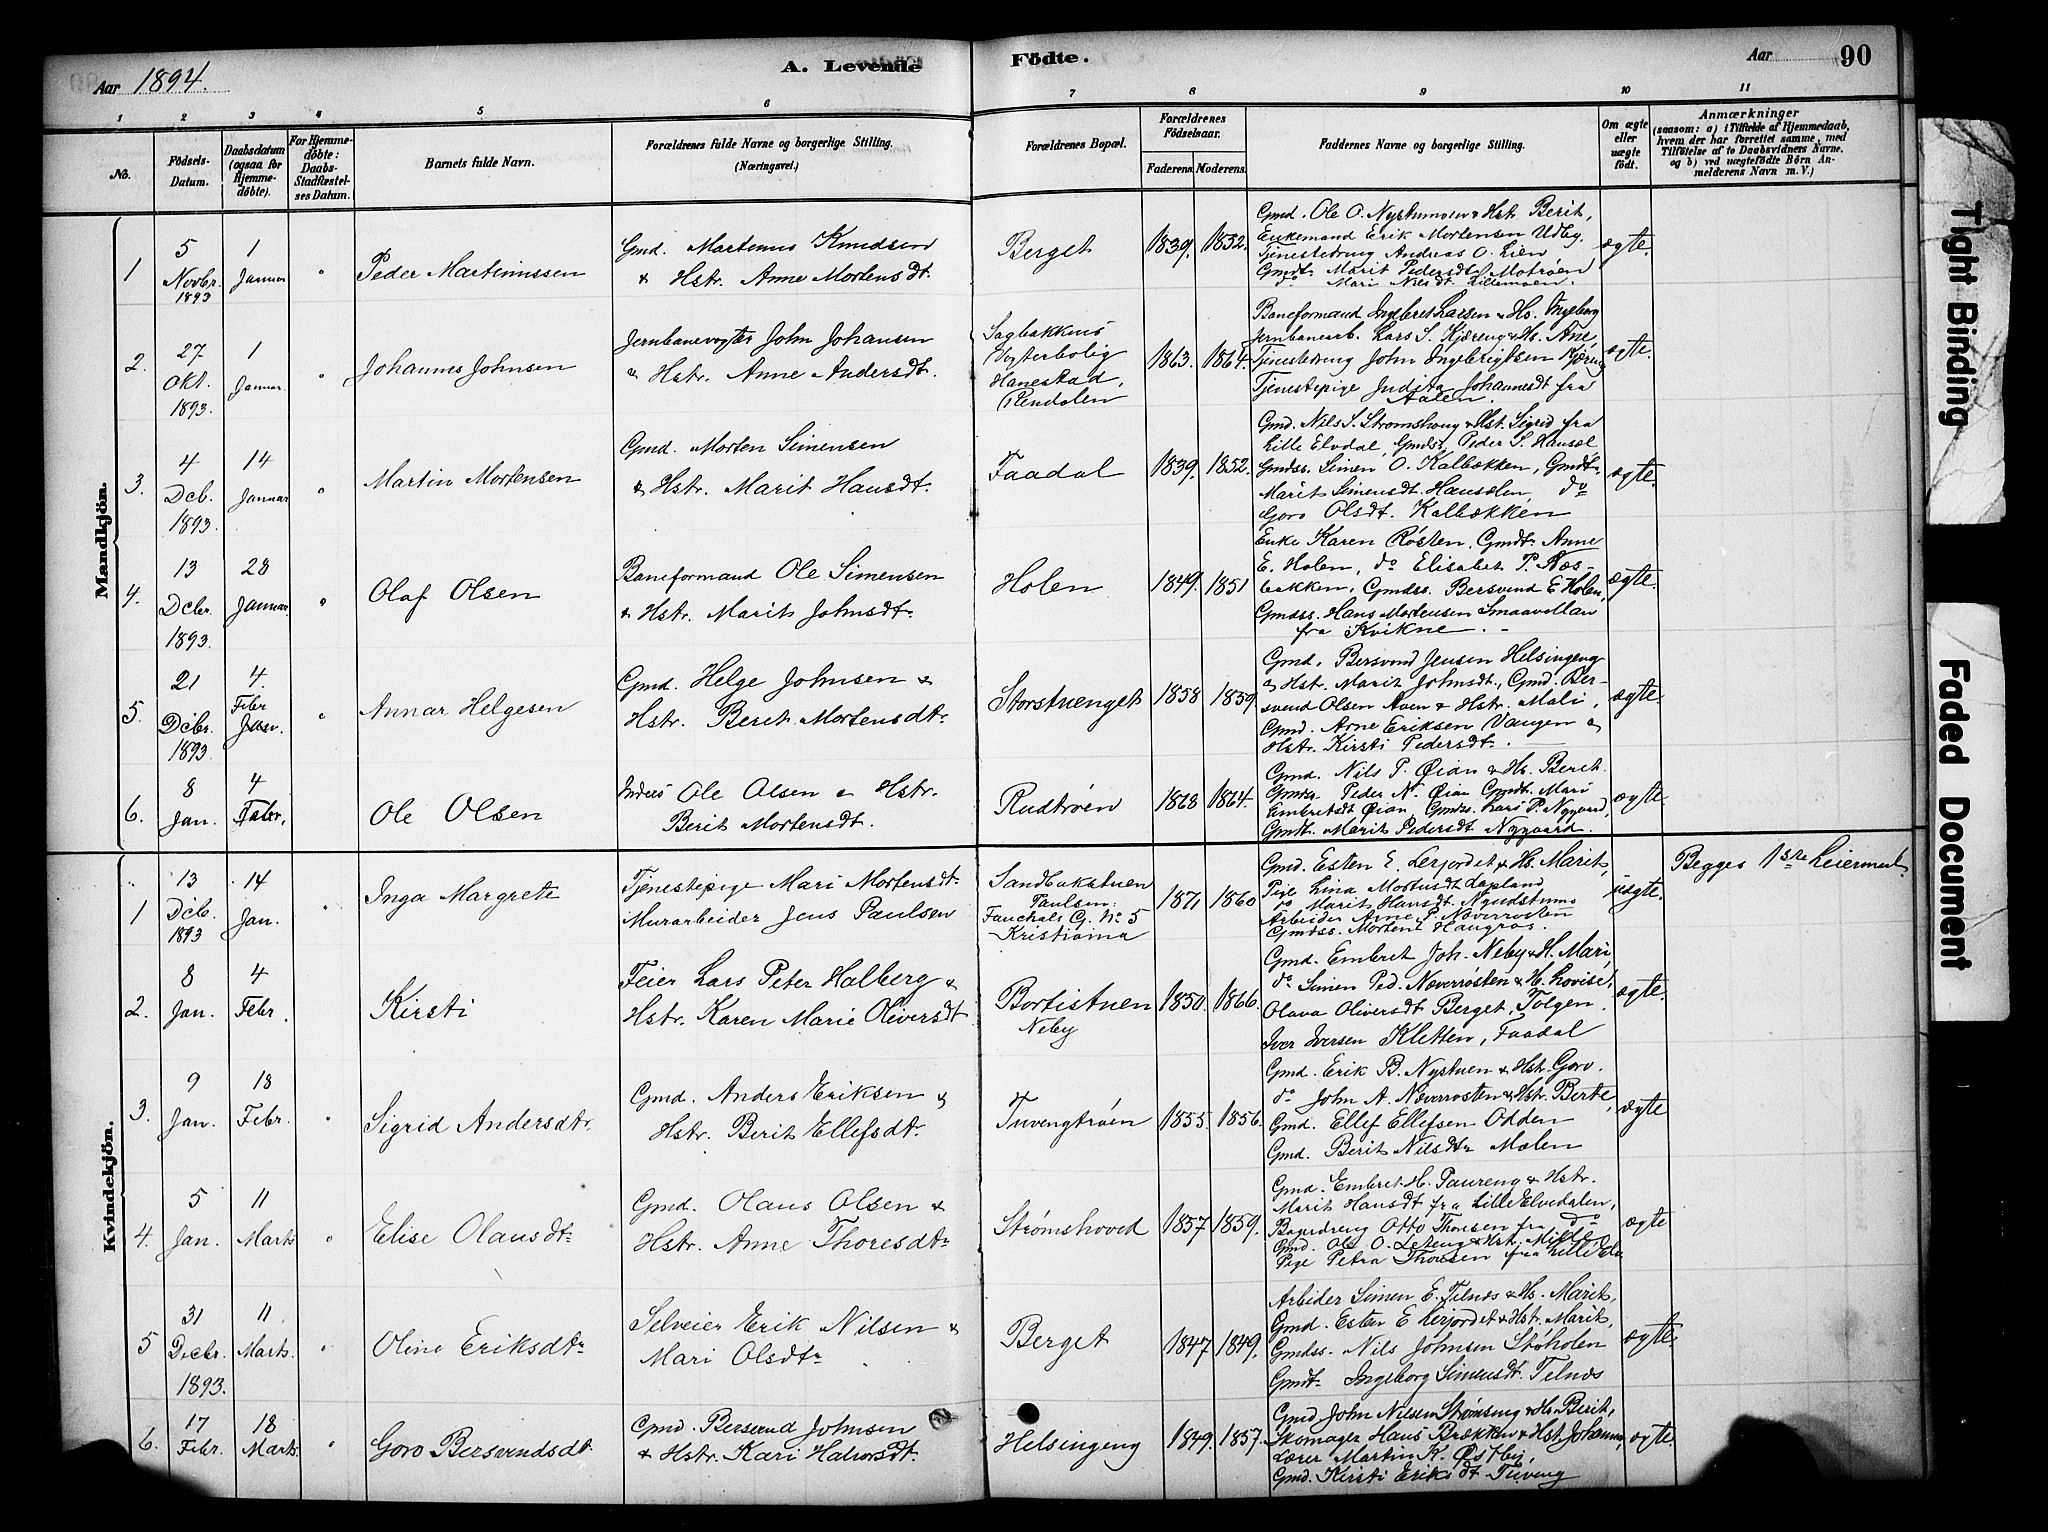 Aar 1894.
A. Levende Födte.
Aar 90
1 2 3 4 5 6 7 8 9 10 11
No.
Födsels-Datum.
Daabsdatum (ogsaa for Hjemmedöbte).
For Hjemmedöbte: Daabs-Stadfæstelses Datum.
Barnets fulde Navn.
Forældrenes fulde Navne og borgerlige Stilling.
(Næringsvei.)
Forældrenes Bopæl.
Forældrenes Födselsaar.
Faderens. Moderens.
Faddernes Navne og borgerlige Stilling.
Om ægte eller uægte födt.
Anmærkninger
(saasom: a) i Tilfælde af Hjemmedaab, hvem der har forrettet samme, med Tilföielse af to Daabsvidners Navne, og b) ved uægtefödte Börn Anmelderens Navn m. V.)
Mandkjön.
1
5 Novbr. 1893
1 Januar
Peder Martinussen
Gmd. Martinus Knudsen
& Hstr. Anne Mortensdt.
Berget
1839. 1852.
Gmd. Ole O. Nystumoen & Hst. Berit,
Enkemand Erik Mortensen Udby,
Tjenestedreng Andreas O. Lien
Gmdt. Marit Pedersdt. Motrøen
do Mari Nilsdt. Lillemoen.
ægte.
2.
27 Okt. 1893.
1 Januar.
Johannes Johnsen
Jernbanevogter John Johansen
& Hstr. Anne Andersdt.
Sagbakkens
Vogterbolig
Hanestad,
Rendalen
1863. 1864.
Baneformand Ingebret Larsen & Hs. Ingeborg
Jernbanearb. Lars S. Kjæreng & Hs. Ane,
Tjenestedreng John Ingebrigtsen Kjæreng
Tjenestepige Judita Johannesdt fra
Aalen.
ægte.
3.
4 Dcb. 1893.
14 Januar
Martin Mortensen
Gmd. Morten Simensen
& Hstr. Marit Hansdt.
Faadal
1839. 1852.
Gmd. Nils S. Strømshoug & Hst. Sigrid fra
Lille Elvdal, Gmdss. Peder S.
Gmdss. Simen O. Kalbækken, Gmdt.
Marit Simensdt. do
Goro Olsdt. Kalbækken
ægte.
4.
13 Dcbr. 1893.
28 Januar.
Olaf Olsen
Baneformand Ole Simensen
& Hstr. Marit Johnsdt.
Holen
1849. 1851
Enke Karen Røsten, Gmdt. Anne
E. Holen, do Elisabet P. Ros-
bakken, Gmdss. Bersvend E. Holen,
Gmdss. Hans Mortensen Smaavollan
fra Kvikne.
ægte.
5.
21 Dcbr. 1893
4. Febr
Annar Helgesen
Gmd. Helge Johnsen &
Hstr. Berit Mortensdt.
Storstuenget
1858 1859.
Gmd. Bersvend Jensen Helsingeng
& Hstr. Marit Johnsdt., Gmd. Ber-
svend Olsen Aven & Hstr. Mali,
Gmd. Arne Eriksen Vangen &
Hstr. Kirsti Pedersdt.
ægte.
6.
8 Jan.
4 Febr.
Ole Olsen
Inders Ole Olsen & Hstr.
Berit Mortensdt.
Rudtrøen
1868 1864.
Gmd. Nils P. Øian & Hs. Berit.
Gmdss. Peder N. Øian Gmdt. Mari
Embretsdt Øian, Gmdss. Lars P. Nygaard,
Gmdt. Marit Pedersdt Nygaard.
ægte.
Kvindekjön.
1
13 Dcb. 1893
14 Jan.
Inga Margrete
Tjenestepige Mari Mortensdt.
Murarbeider Jens Paulsen
Sandbakstuen
Paulsen:
Fauchals G. No. 5
Kristiania
1871 1860
Gmd. Esten E. Lerjordet & Hs. Marit,
Pige Lina Lapland
do Marit Hansdt
Arbeider Arne P. Neverrosten
Gmdss. Morten Haugros.
uægte.
Begges 1ste Leiermaal.
2.
8 Jan.
4 Febr.
Kirsti
Feier Lars Peter Halberg &
Hstr. Karen Marie Oliversdt
Bortistuen
Neby
1850. 1866.
Gmd. Embret Joh. Neby & H. Mari,
do Simen Ped. Neverrøsten & H. Lovise,
Olava Oliversdt Berget, Tolgen,
Iver Iversen Kletten, Faadal
ægte.
3.
9 Jan.
18 Febr.
Sigrid Andersdt.
Gmd. Anders Eriksen &
Hstr. Berit Ellefsdt.
Tuvengtrøen
1855. 1856.
Gmd. Erik B. Nystuen & Hst. Goro.
do John A. Neverrosten & Hst. Berte,
Gmd. Ellef Ellefsen Odden
Gmd. Berit Nilsdtr Molen
ægte
4.
5 Jan.
11 Marts
Elise Olausdtr
Gmd. Olaus Olsen &
Hstr. Anne Thoresdtr
Strømshoved
1857 1859.
Gmd. Embret H. Paureng & Hstr.
Marit Hansdt fra Lille Elvedalen,
Otto Thonsen fra do
Gmd. Ole O. & Hst. Milde
Pige Petra Thonsen fra
ægte
5
31 Decbr. 1893.
11 Marts.
Oline Eriksdtr
Selveier Erik Nilsen &
Mari Olsdtr
Berget
1847 1849.
Arbeider Simen E. Telnes & Hs. Marit,
Gmd. Esten E Lerjordet & Hst. Marit,
Gmdss. Nils Johnsen Støholen
Gmdt. Ingeborg Simensdt. Telnes
ægte.
6.
17 Febr.
18 Marts.
Goro Bersvendsdt.
Gmd. Bersvend Johnsen
& Hstr. Kari Halvorsdt.
Helsingeng
1849. 1857.
Gmd John Nilsen Strømeng & Hs. Berit,
Skomager Hans Brækken & Hst. Johanne,
Lærer Martin K. Østby,
Gmd. Kirsti Eriksdt Tuveng
ægte.
Tight Binding
Faded Document